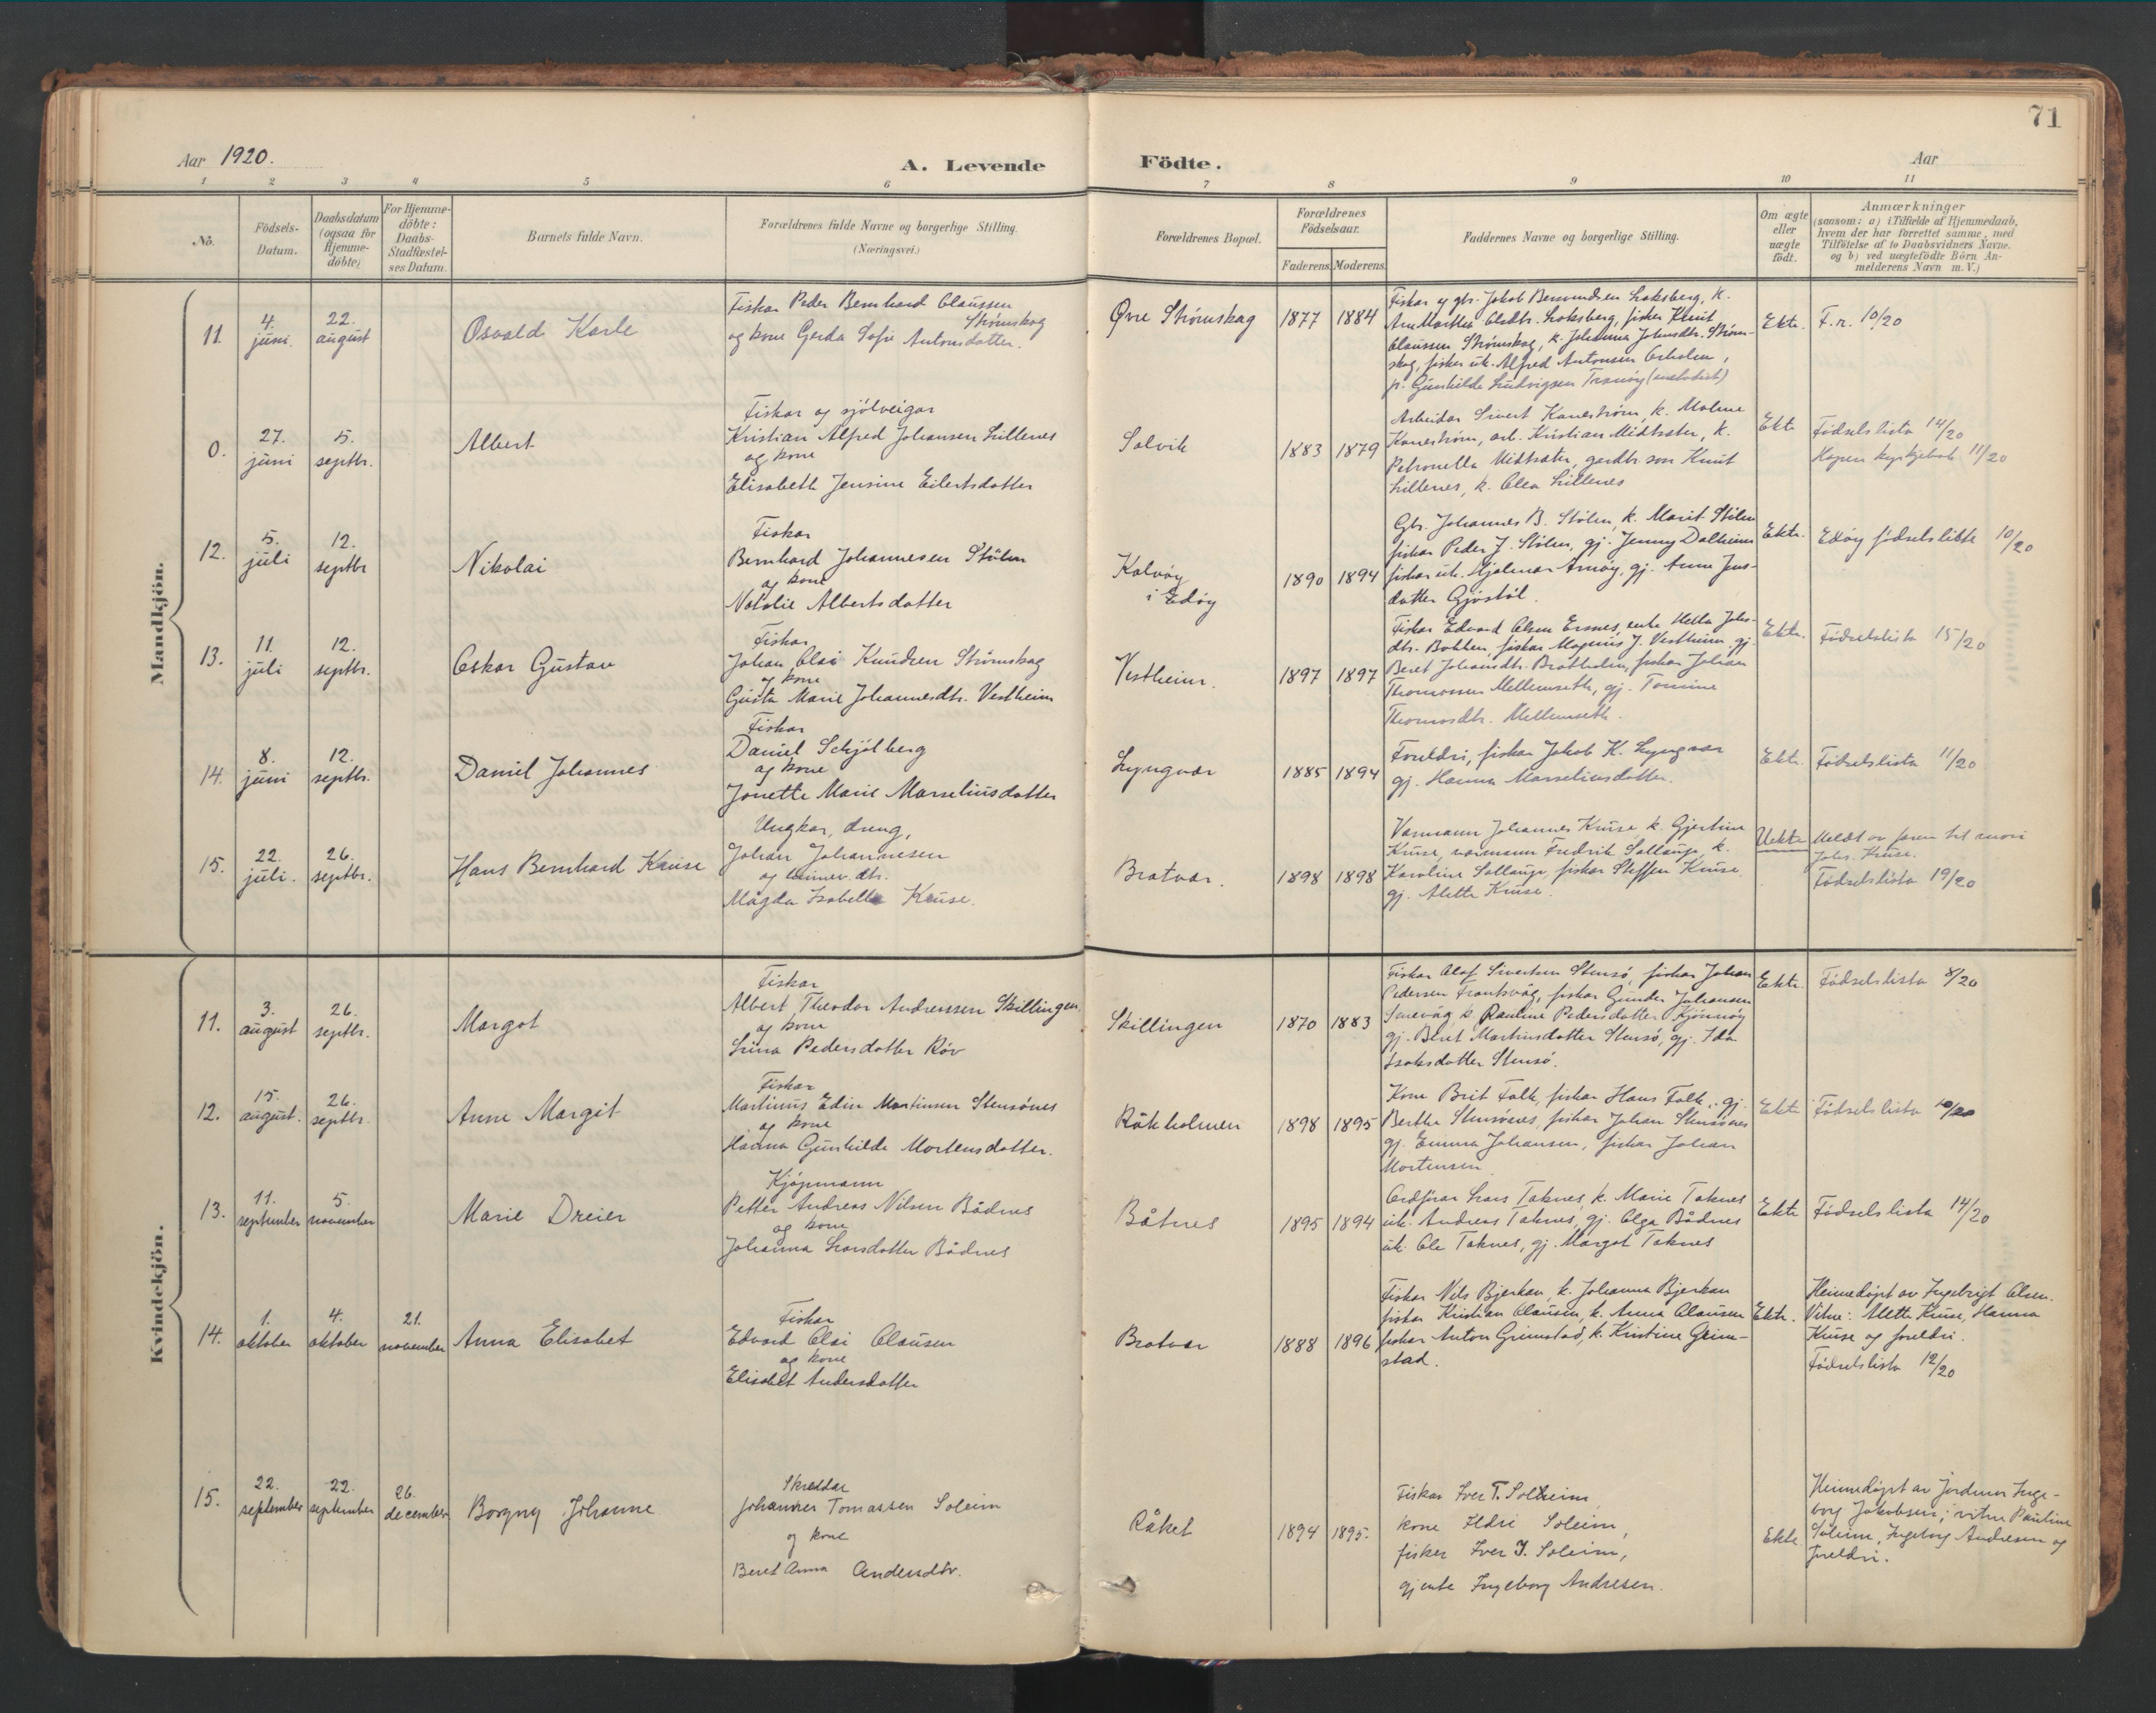 71
Aar 1920.
A. Levende Födte.
Aar
1 2 3 4 5 6 7 8 9 10 11
No.
Födsels-
Datum.
Daabsdatum
(ogsaa for
Hjemme-
döbte)
For Hjemme-
döbte:
Daabs-
Stadfæstel-
ses Datum.
Barnets fulde Navn.
Forældrenes fulde Navne og borgerlige Stilling.
(Næringsvei.)
Forældrenes Bopæl.
Forældrenes
Födselsaar.
Faderens. Moderens.
Faddernes Navne og borgerlige Stilling.
Om ægte
eller
uægte
födt.
Anmærkninger
(saasom: a) i Tilfælde af Hjemmedaab,
hvem der har forrettet samme, med
Tilföielse af to Daabsvidners Navne.
og b) ved uægtefödte Börn An-
melderens Navn m. V.)
Mandkjön.
11.
4.
juni.
22.
august
Osvald Karle
Fiskar Peder Bernhard Claussen
Strömskog
og kone Gerda Sofie Antonsdatter.
Øvre Strömskag
1877 1884
Fiskar og gbr. Jakob Laksberg, k.
Ane Marthe Laksberg, fisker Knut
Claussen Strömskag, k. Johanna Johnsdtr. Ström-
skag, fisker uk. Alfred Antonsen
p. Gunhilde Ludvigsen Tranöy
Ekte.
F.r. 10/20
0.
27.
juni
5.
septbr.
Albert
Fiskar og sjölveigar
Kristian Alfred Johansen Lillenes
og kone
Elisabeth Jensine Eilertsdatter
Solvik
1883 1879
Arbeidar Sivert Kaneström, k. Malene
Kaneström, arb. Kristian Midtsæter, k.
Petronella Midtsæter, gardbr. son Knut
Lillenes, k. Olea Lillenes
Ekte
Födselslista 14/20
Kopen kyrkjebok 11/20
12.
5.
juli
12.
septbr
Nikolai
Fiskar
Bernhard Johannesen Stölen
og kone
Natalie Albertsdatter
Kalvöy
i Edöy
1890 1894
Gbr. Johannes B. Stölen, k. Marit Stölen
fiskar Peder J. Stölen, gj. Jenny Dalheim
fiskar uk. Hjalmar Arnöy, gj. Anna Jens-
datter Gjöstöl.
Ekte.
Edöy födselsliste 10/20
13.
11.
juli
12.
septbr.
Oskar Gustav
Fiskar
Johan Olai Knudsen Strömskag
og kone
Gusta Marie Johannesdtr. Vestheim
Vestheim.
1897 1897
Fiskar Edvard Olsen Ersnes, enke Hella Johs-
dtr. Botten, fiskar Magnus J. Vestheim, gj.
Beret Johansdtr. Bratholm, fiskar Johan
Thomassen Mellemseth, gj. Tomine
Thomasdtr. Mellemseth.
Ekte.
Födselslista 15/20
14.
8.
juni
12.
septbr.
Daniel Johannes
Fiskar
Daniel Schjölberg
og kone
Jonette Marie Marseliusdatter
Lyngvær
1885 1894
Foreldri, fiskar Jakob K. Lyngvær
gj. Hanna Marseliusdatter.
Ekte.
Födselslista 11/20
15.
22.
juli.
26.
septbr.
Hans Bernhard Kruse
Ungkar, dreng,
Johan Johannesen
og heimev. dtr.
Magda Isabella Kruse.
Bratvær.
1898 1898
Varmann Johannes Kruse, k. Gjertine
Kruse, varmann Fredrik Sollauge, k.
Karoline Sollauge, fiskar Steffen Kruse
gj. Alette Kruse.
Uekte
Meldt av faren til mori
Johs. Kruse.
Födselslista 19/20
Kvindekjön.
11.
3.
august
26.
septbr.
Margot
Fiskar
Albert Theodor Andreassen Skillingen
og kone
Lina Pedersdatter Röv
Skillingen
1870 1883
Fiskar Olaf Sivertsen Stensö, fiskar Johan
Pedersen Frantsvåg, fiskar Gunder Johansen
k. Pauline Pedersdatter Kjönnöy
gj. Beret Martinsdatter Stensö, gj. Ida
Isaksdatter Stensö.
Ekte.
Födselslista 8/20
12.
15.
august.
26.
septbr.
Anne Margit
Fiskar
Martinus Edin Martinsen Stensönes
og kone
Hanna Gunhilde Mortensdatter.
Råkholmen
1898 1895
Kone Brit Falk, fiskar Hans Falk, gj.
Berthe Stensönes, fiskar Johan Stensönes
gj. Emma Johansen, fiskar Johan
Mortensen
Ekte
Födselslista 10/20
13.
11.
september
5.
november
Marie Dreier
Kjöpmann
Petter Andreas Nilsen Bådnes
og kone
Johanna Larsdatter Bådnes
Båtnes
1895 1894
Ordförar Lars Taknes, k. Marie Taknes
uk. Andreas Taknes, gj. Olga Bådnes
uk. Ole Taknes, gj. Margot Taknes
Ekte
Födselslista 14/20
14.
1.
oktober
4.
oktober
21.
november
Anna Elisabet
Fiskar
Edvard Olai Clausen
og kone
Elisabet Andersdatter
Bratvær
1888 1896
Fiskar Nils Bjerkan, k. Johanna Bjerkan
fiskar Kristian Clausen, k. Anna Clausen
fiskar Anton Grimstad, k. Kristine Grim-
stad.
Ekte.
Heimedöpt av Ingebrigt Olsen.
Vitne: Alette Kruse, Hanna
Kruse og foreldri.
Födselslista 12/20
15.
22.
september
22.
september
26.
december
Borgny Johanne
Skreddar
Johannes Tomassen Soleim
og kone
Beret Anna Andersdtr.
Råket
1894 1895.
Fiskar Iver T. Solheim,
kone Ildri Soleim,
fisker Iver J. Soleim,
gjente Ingeborg Andresen.
Ekte
Heimedöpt av jordmor Inge-
borg Jakobsen; vitne Pauline
Soleim, Ingeborg Andresen og
foreldri.